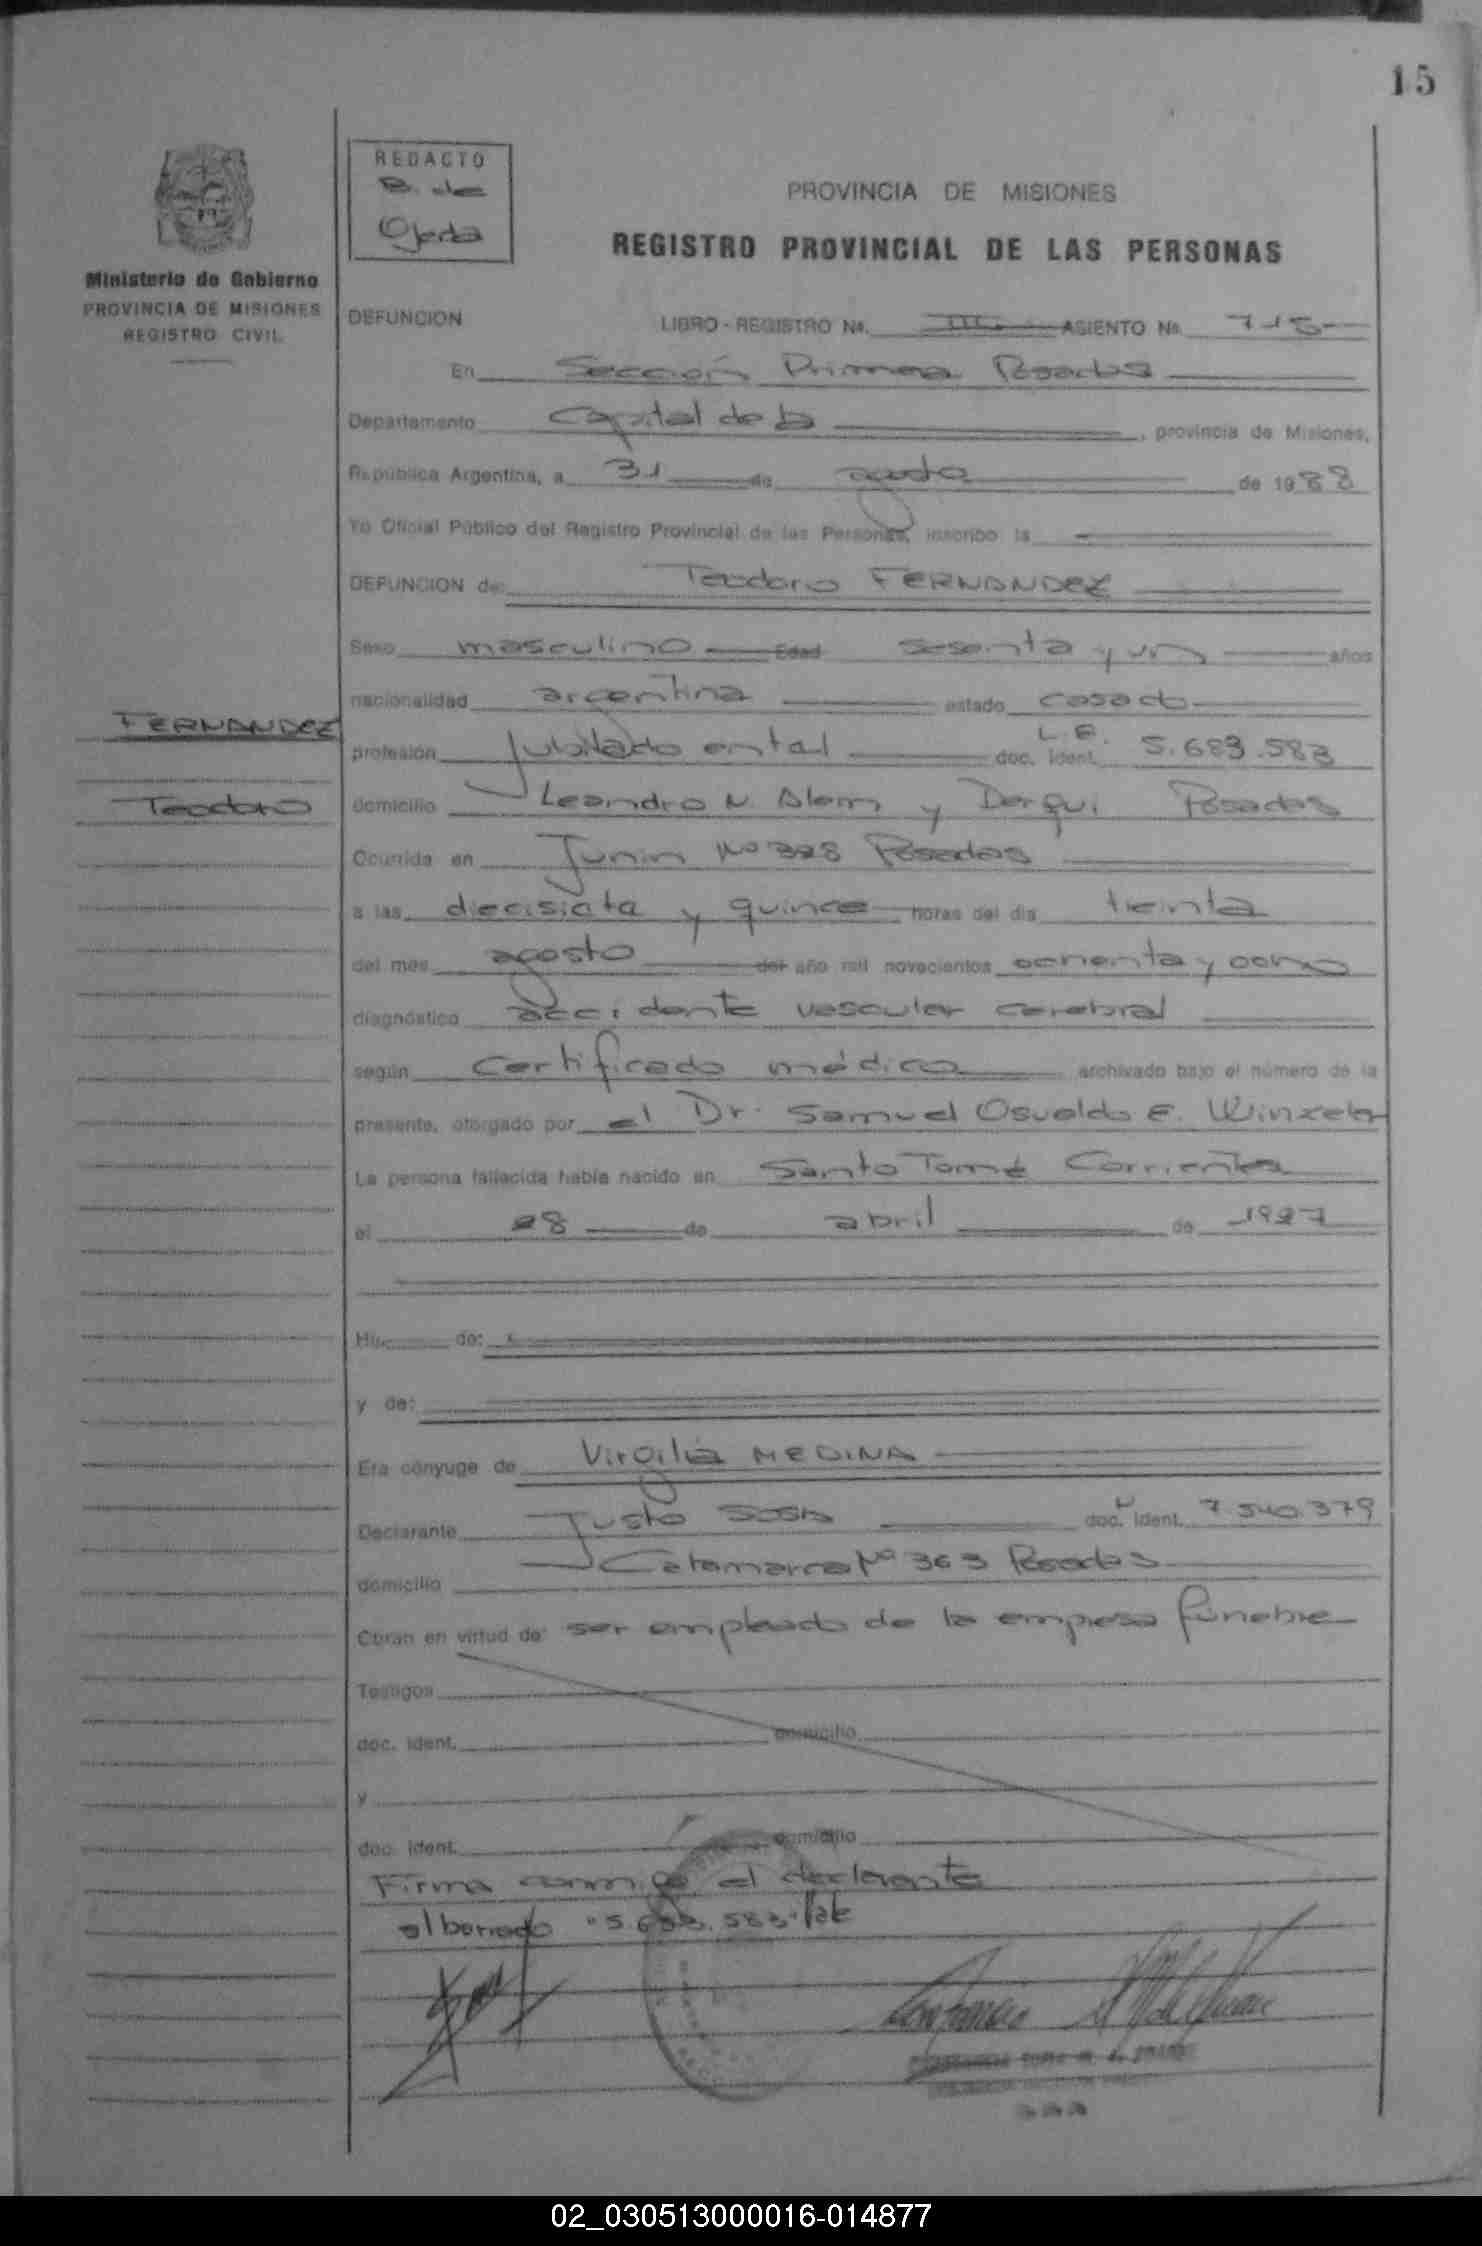 15
REDACTO
B. de
Ojeda
Ministerio de Gobierno
PROVINCIA DE MISIONES
REGISTRO CIVIL
PROVINCIA DE MISIONES
REGISTRO PROVINCIAL DE LAS PERSONAS
DEFUNCION LIBRO - REGISTRO No. III ASIENTO No. 715
En Sección Primera Posadas
Departamento Capital de la , provincia de Misiones,
República Argentina, a 31 de agosto de 1988
Yo Oficial Público del Registro Provincial de las Personas, inscribo la
DEFUNCION de: Teodoro FERNANDEZ
Sexo masculino Edad sesenta y un años
nacionalidad argentina estado casado
FERNANDEZ
Teodoro
profesión jubilado ental doc. ident. L.E. 5.683.583
domicilio Leandro N. Alem y Derqui Posadas
Ocurrida en Junin No 328 Posadas
a las diecisiete y quince horas del día treinta
del mes agosto del año mil novecientos ochenta y ocho
diagnóstico accidente vascular cerebral
según certificado médico archivado bajo el número de la
presente, otorgado por el Dr. Samuel Osvaldo E.
La persona fallecida había nacido en Santo Tomé Corrientes
el 28 de abril de 1927
Hij de:
y de:
Era cónyuge de Virgilia MEDINA
Declarante Justo SOSA doc. ident. 7.540.379
domicilio Catamarca No 363 Posadas
Obran en virtud de: ser empleado de la empresa fúnebre
Testigos
doc. ident. domicilio
y
doc. ident. domicilio
Firma conmigo el declarante
el borrado "5.683.583" Vale
02_030513000016-014877